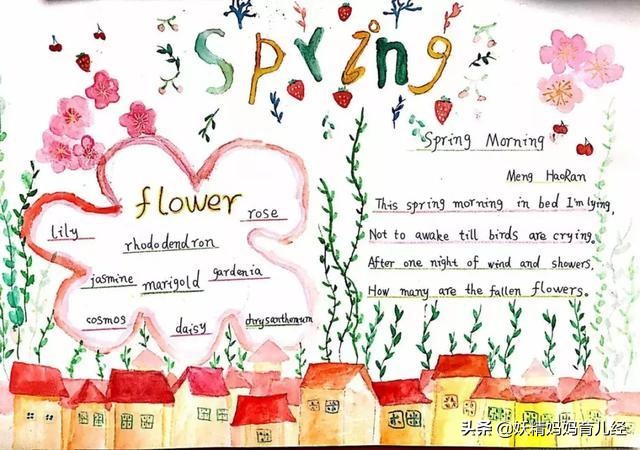 Spring
flower
lily
rose
rhododendron
jasmine
marigold
gardenia
cosmos
daisy
chrysanthemum
Spring Morning
Meng HaoRan
This spring morning in bed I'm lying,
Not to awake till birds are crying.
After one night of wind and showers,
How many are the fallen flowers.
头条 @妖精妈妈育儿经